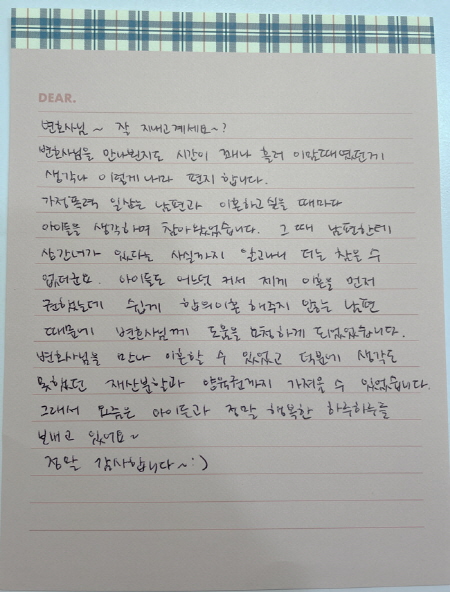 DEAR.
변호사님~ 잘 지내고계세요~?
변호사님을 만나뵌지도 시간이 꽤나 흘러 이맘때였던게
생각나 이렇게나마 편지 합니다.
가정폭력 일삼는 남편과 이혼하고 싶을 때마다
아이들을 생각하며 참아왔었습니다. 그 때 남편한테
상간녀가 있다는 사실까지 알고나니 더는 참을 수
없더군요. 아이들도 어느덧 커서 제게 이혼을 먼저
권했는데 쉽게 합의이혼 해주지 않는 남편
때문에 변호사님께 도움을 요청하게 되었었습니다.
변호사님을 만나 이혼할 수 있었고 덕분에 생각도
못했던 재산분할과 양육권까지 가져올 수 있었습니다.
그래서 요즘은 아이들과 정말 행복한 하루하루를
보내고 있어요~
정말 감사합니다~:)